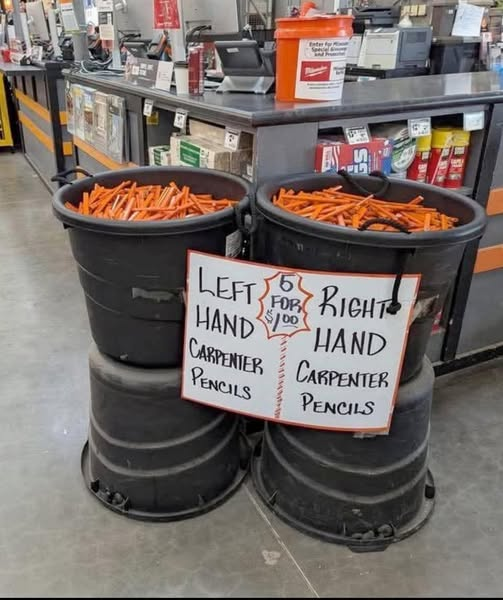 Enter for Milwaukee
Special Giveaways
and Promotions
Milwaukee
LEFT
HAND
CARPENTER
PENCILS
5
FOR
$1.00
RIGHT
HAND
CARPENTER
PENCILS